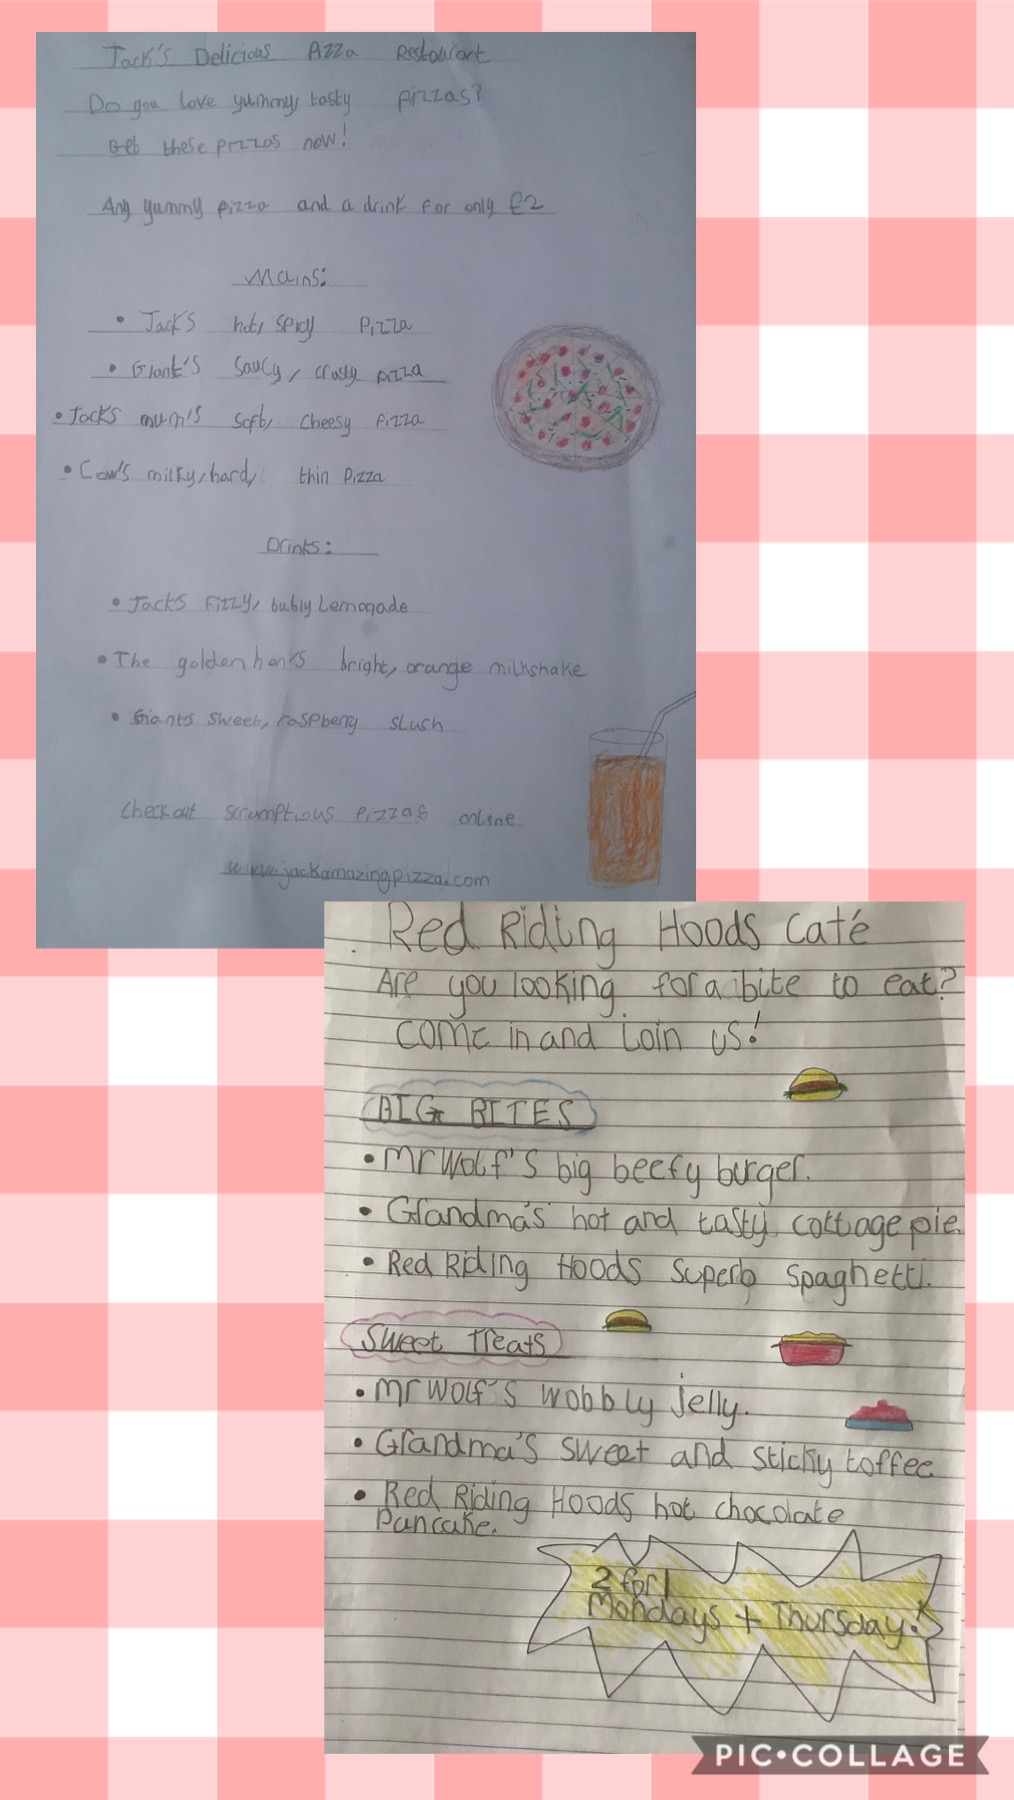 Jack's Delicious Pizza Restaurant
Do you love yummy, tasty pizzas?
Get these pizzas now!
Any yummy pizza and a drink for only £2
Mains:
• Jack's hot, spicy pizza
• Giant's saucy, crusty pizza
• Jack's mum's soft, cheesy pizza
• Cow's milky, hard, thin pizza
Drinks:
• Jack's fizzy, bubly Lemonade
• The golden hen's bright, orange milkshake
• Giants sweet, raspberry slush
Check out scrumptious pizzas online
www.jackamazingpizza.com
Red Riding Hoods Café
Are you looking for a bite to eat?
come in and Join us!
BIG BITES
• Mr Wolf's big beefy burger.
• Grandma's hot and tasty cottage pie.
• Red Riding Hoods superb spaghetti.
Sweet Treats
• Mr Wolf's wobbly jelly.
• Grandma's sweet and sticky toffee
• Red Riding Hoods hot chocolate
Pancake.
2 for 1
Mondays + Thursday!
PIC•COLLAGE